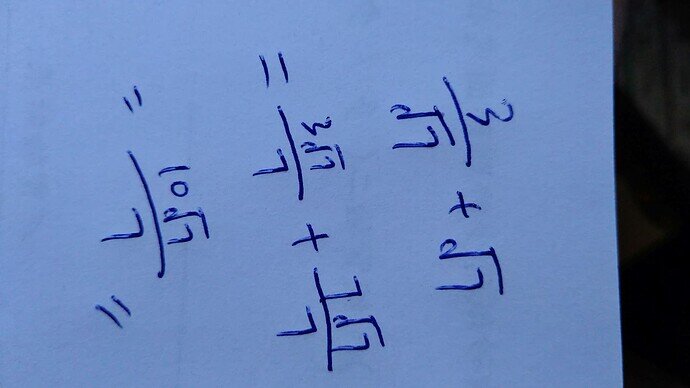 3/√7 + √7
= 3√7/7 + 7√7/7
= 10√7/7 =